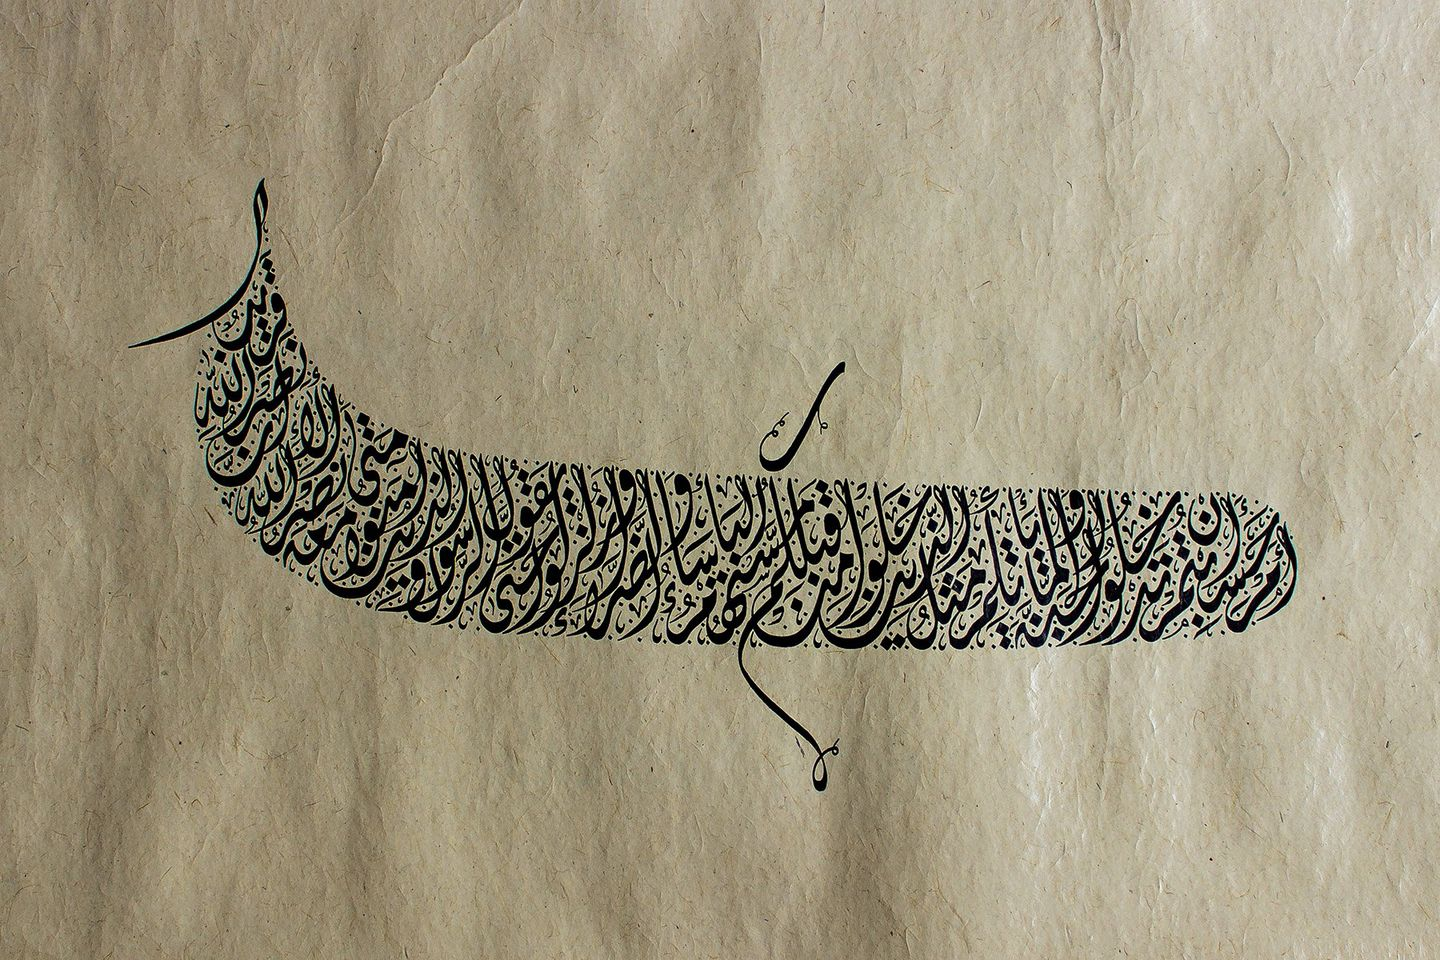 أم حسبتم أن تدخلوا الجنة ولما يأتكم مثل الذين خلوا من قبلكم مستهم البأساء والضراء وزلزلوا حتى يقول الرسول والذين آمنوا معه متى نصر الله ألا إن نصر الله قريب